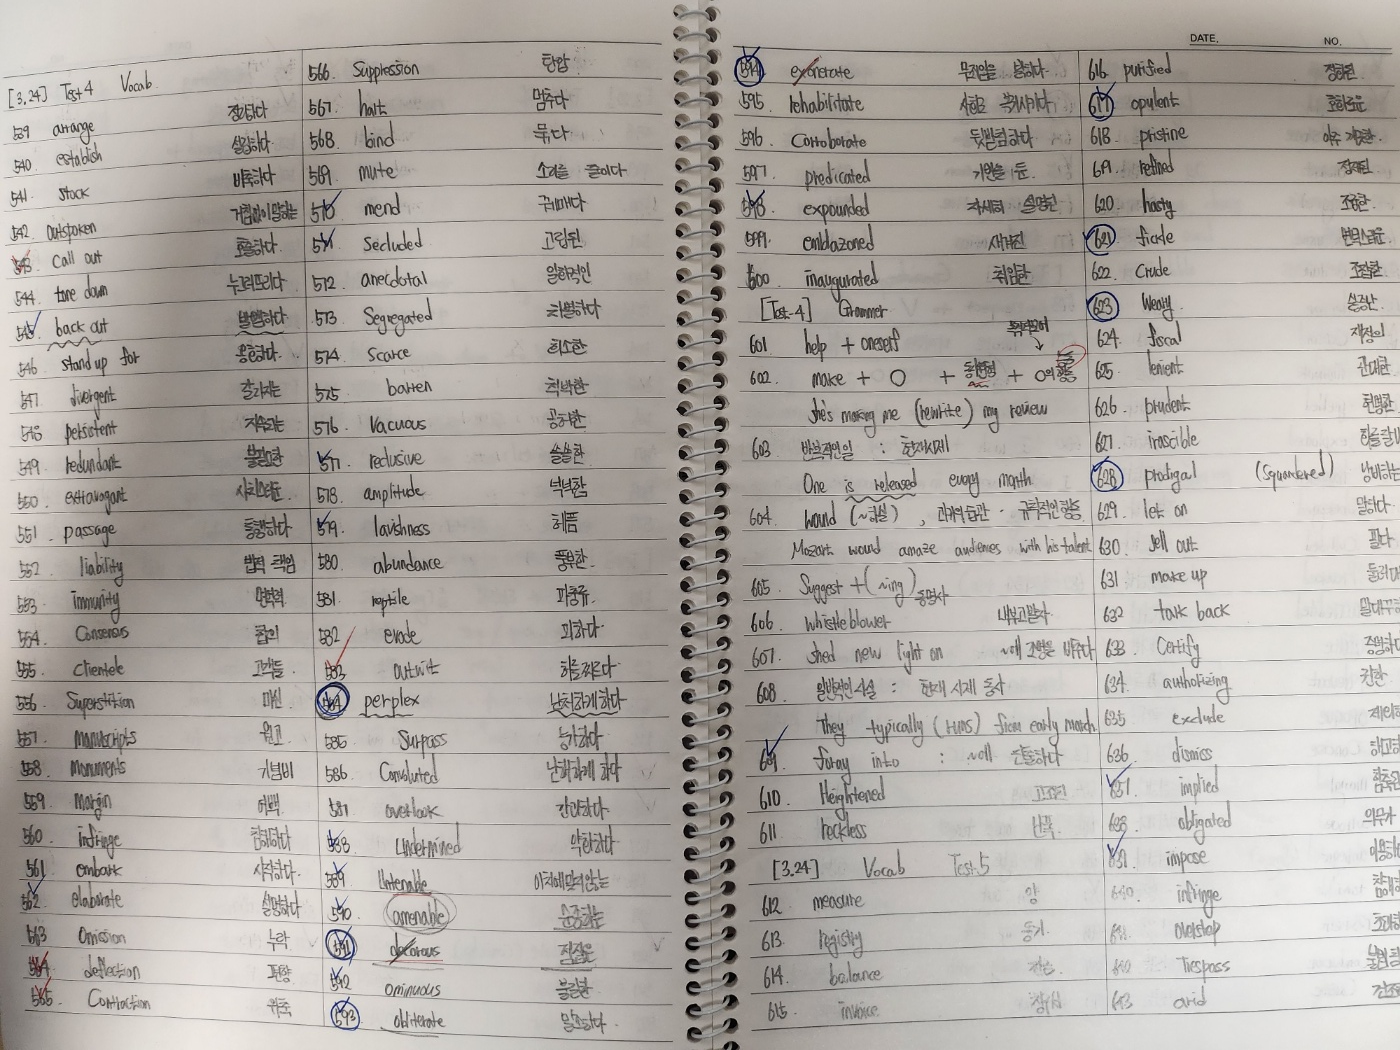 [3.24] Test 4 Vocab.
539 arrange 정리하다
540. establish 설립하다
541. stock 비축하다
542 outspoken 거침없이 말하는
543 call out 호출하다.
544. tone down 누그러뜨리다
545 back out
546 stand up for 옹호하다.
547 divergent 갈라지는
548 persistent 지속되는
549 redundant 불필요한
550 extravagant 사치스러운.
551 passage 통행하다
552 liability 법적 책임
553 immunity 면역력
554 Consensus 합의
555 clientele 고객들
556 Superstition 미신
557. manuscripts 원고
558 Monuments 기념비
559 Margin 여백
560 infringe 침해하다
561 embark 시작하다.
562 elaborate 설명하다
563 Omission 누락
564 deflection 편향
565. Contraction 위축
566. Suppression 탄압
567. halt 멈추다
568 bind 묶다
569 mute 소리를 줄이다
570 mend 꿰매다
571 Secluded 고립된
572 anecdotal 일화적인
573 Segregated 차별하다
574 scarce 희소한
575 barren 척박한
576 Vacuous 공허한
577. reclusive 쓸쓸한
578 amplitude
579. lavishness 헤픔
580 abundance 풍부한.
581. reptile 파충류.
582 evade 피하다.
583 outwit 허를찌르다
584 perplex 난처하게하다
585 Surpass 능가하다
586 Convoluted 난해하게 하다
587 overlook 간과하다
588 Undermined 약화하다
589 Untenable
590 amenable 순종하는
591 decorous 점잖은
592 ominous 불길한
593 obliterate 말소하다.
DATE. NO.
594 exonerate
595. rehabilitate 사회로 복귀시키다
596 Corroborate 뒷받침하다
597 predicated 기반을 둔.
598 expounded 자세히 설명된
599. emblazoned 새겨진
600 inaugurated 취임한
[Test-4] Grammer
601 help + oneself
602 make + O + 동사원형 + O의 행동
She's making me (rewrite) my review
603 반복적인일 : 현재시제
One is released every month
604 would (~하실) , 과거의습관 · 규칙적인행동
Mozart would amaze audiences with his talent
605 Suggest + (~ing) 동명사
606 whistleblower 내부고발자.
607 shed new light on ~에 조명을 비추다
608 일반적인사실 : 현재 시제 동사
They typically (runs) from early march
609 foray into : ~에 진출하다
610 Heightened 고조된
611 reckless
[3.24] Vocab Test.5
612 measure
613. registry 등기.
614 balance
615. invoice
616 purified 정화된
617 opulent 호화로운
618 pristine 아주 깨끗한.
619 refined 정제된
620 hasty 조급한.
621 fickle 변덕스러운
622. Crude 조잡한
623 Weary. 싫증난
624. fiscal 재정의
625 lenient 관대한
626 prudent 현명한
627. irascible
628 prodigal (Squandered) 낭비하는
629. let on 말하다.
630. sell out 팔다.
631 make up
632 talk back 말대꾸하
633 Certify 증명하다
634. authorizing
635 exclude
636 dismiss
637 implied
638 obligated 의무가
639 impose
640 infringe
641 overstep
642 Trespass
643 arid